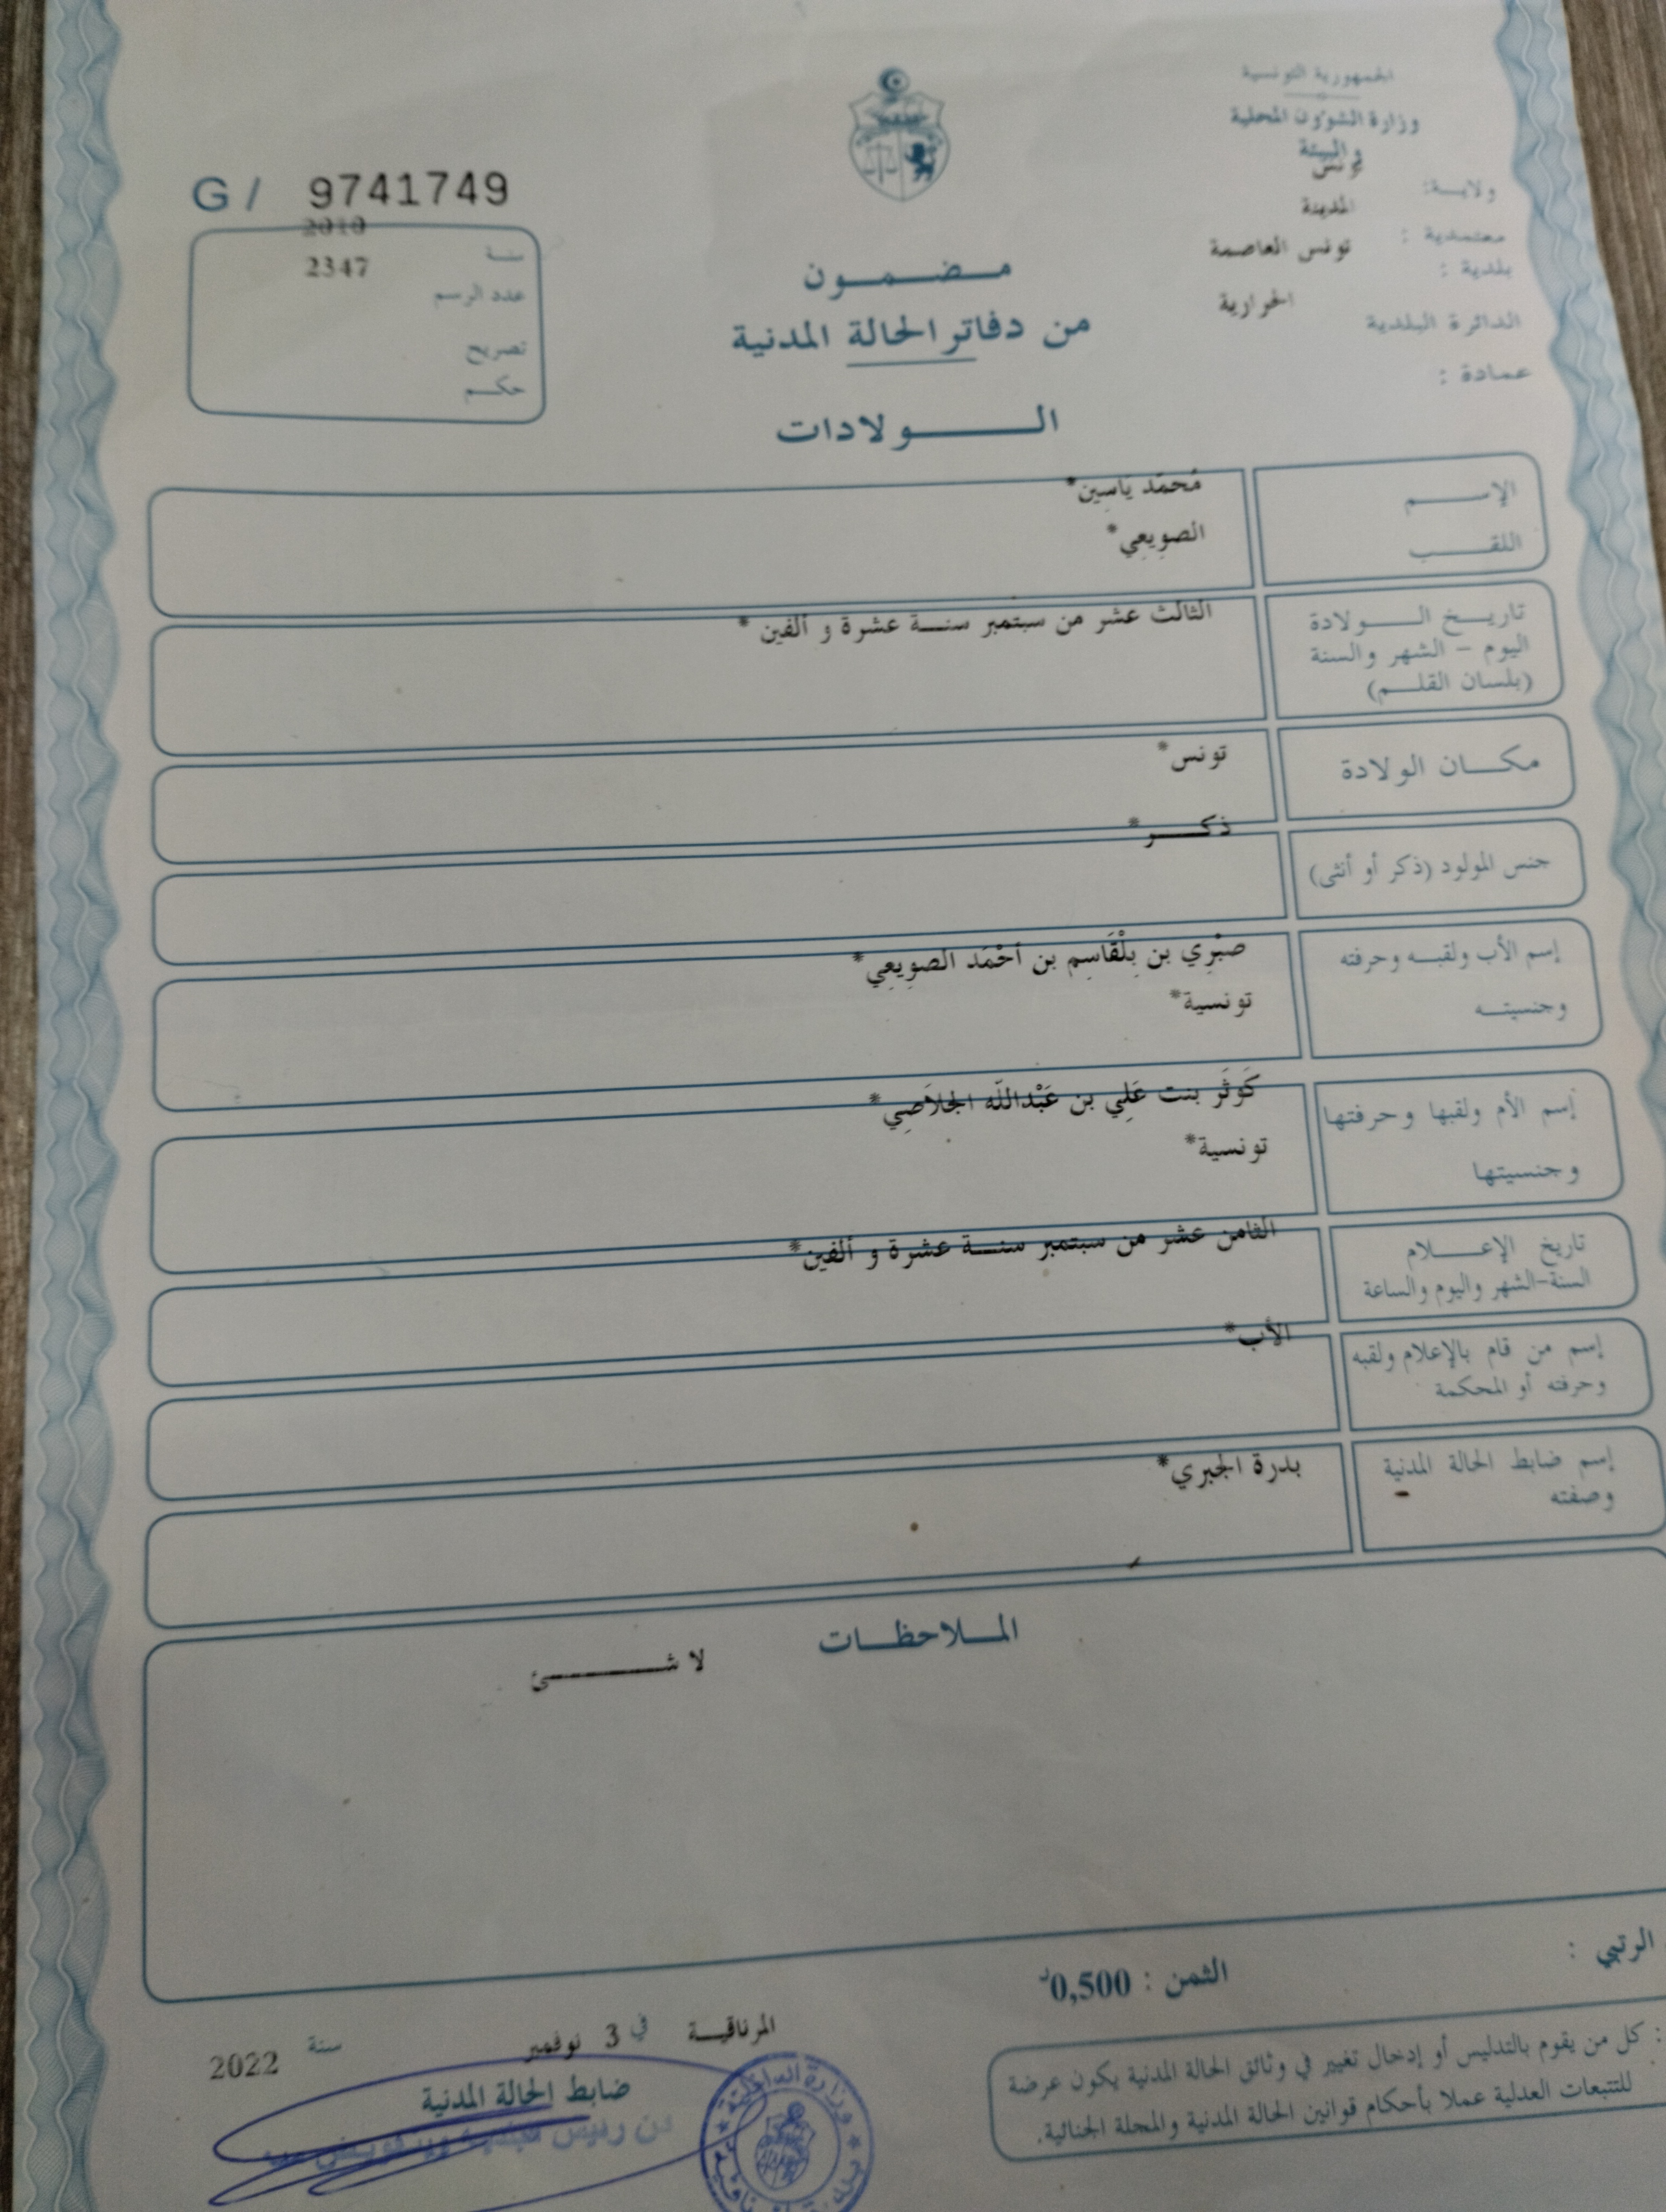 الجمهورية التونسية
وزارة الشؤون المحلية
والبيئة
ولاية: تونس
معتمدية : المدينة
بلدية : تونس العاصمة
الدائرة البلدية الحرايرية
عمادة :
G / 9741749
سنة 2010
عدد الرسم 2347
تصريح
حكم
مضمون
من دفاتر الحالة المدنية
الولادات
الإسم مُحمّد يَاسِين*
اللقب الصويعِي*
تاريخ الولادة الثالث عشر من سبتمبر سنة عشرة و ألفين *
اليوم – الشهر والسنة
(بلسان القلم)
مكان الولادة تونس*
جنس المولود (ذكر أو أنثى) ذكر*
إسم الأب ولقبه وحرفته صبْرِي بن بِلْقَاسِم بن أحْمَد الصوِيعِي*
وجنسيته تونسية*
إسم الأم ولقبها وحرفتها كَوثَر بنت عَلِي بن عَبْدالله الجلاَصِي*
وجنسيتها تونسية*
تاريخ الإعلام الثامن عشر من سبتمبر سنة عشرة و ألفين*
السنة-الشهر واليوم والساعة
إسم من قام بالإعلام ولقبه الأب*
وحرفته أو المحكمة
إسم ضابط الحالة المدنية بدرة الجبري*
وصفته
الملاحظات
لا شئ
الرتبي :
الثمن : 0,500د
المرناقية في 3 نوفمبر سنة 2022
ضابط الحالة المدنية
: كل من يقوم بالتدليس أو إدخال تغيير في وثائق الحالة المدنية يكون عرضة
للتتبعات العدلية عملا بأحكام قوانين الحالة المدنية والمجلة الجنائية.
وزارة الداخلية